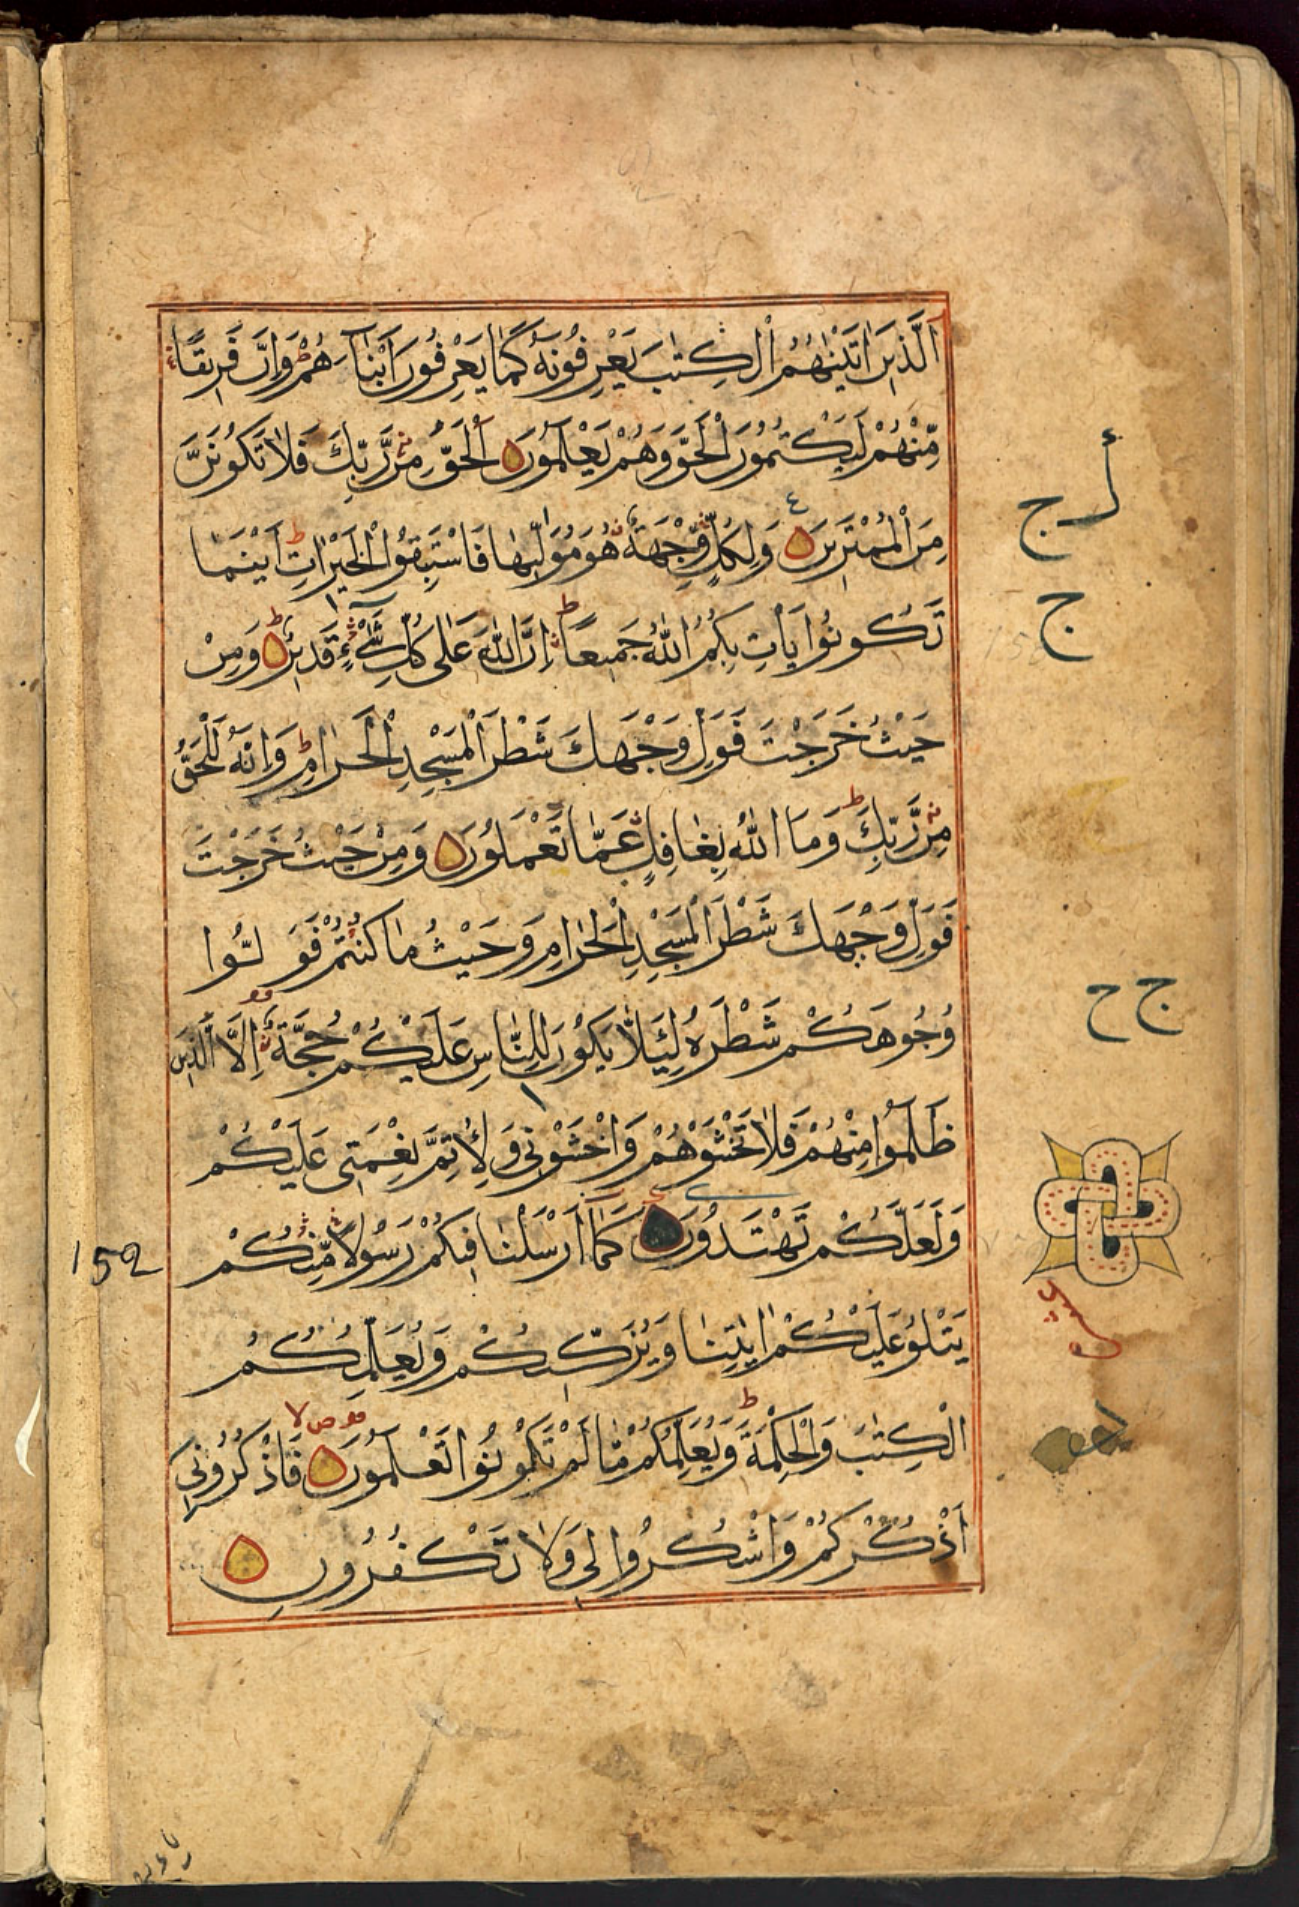 اَلَّذِيْنَ اٰتَيْنٰهُمُ الْكِتٰبَ يَعْرِفُوْنَهٗ كَمَا يَعْرِفُوْنَ اَبْنَآءَهُمْ ط وَاِنَّ فَرِيْقًا
مِّنْهُمْ لَيَكْتُمُوْنَ الْحَقَّ وَهُمْ يَعْلَمُوْنَ ۝ اَلْحَقُّ مِنْ رَّبِّكَ فَلَا تَكُوْنَنَّ
مِنَ الْمُمْتَرِيْنَ ۝ وَلِكُلٍّ وِّجْهَةٌ هُوَ مُوَلِّيْهَا فَاسْتَبِقُوا الْخَيْرَاتِ ط اَيْنَمَا
تَكُوْنُوْا يَاْتِ بِكُمُ اللّٰهُ جَمِيْعًا ط اِنَّ اللّٰهَ عَلٰى كُلِّ شَيْءٍ قَدِيْرٌ ۝ وَمِنْ
حَيْثُ خَرَجْتَ فَوَلِّ وَجْهَكَ شَطْرَ الْمَسْجِدِ الْحَرَامِ ط وَاِنَّهٗ لَلْحَقُّ
مِنْ رَّبِّكَ ط وَمَا اللّٰهُ بِغَافِلٍ عَمَّا تَعْمَلُوْنَ ۝ وَمِنْ حَيْثُ خَرَجْتَ
فَوَلِّ وَجْهَكَ شَطْرَ الْمَسْجِدِ الْحَرَامِ وَحَيْثُ مَا كُنْتُمْ فَوَلُّوْا
وُجُوْهَكُمْ شَطْرَهٗ لِئَلَّا يَكُوْنَ لِلنَّاسِ عَلَيْكُمْ حُجَّةٌ اِلَّا الَّذِيْنَ
ظَلَمُوْا مِنْهُمْ فَلَا تَخْشَوْهُمْ وَاخْشَوْنِيْ وَلِاُتِمَّ نِعْمَتِيْ عَلَيْكُمْ
وَلَعَلَّكُمْ تَهْتَدُوْنَ ۝ كَمَآ اَرْسَلْنَا فِيْكُمْ رَسُوْلًا مِّنْكُمْ
يَتْلُوْ عَلَيْكُمْ اٰيٰتِنَا وَيُزَكِّيْكُمْ وَيُعَلِّمُكُمُ
الْكِتٰبَ وَالْحِكْمَةَ ط وَيُعَلِّمُكُمْ مَّا لَمْ تَكُوْنُوْا تَعْلَمُوْنَ ۝ فَاذْكُرُوْنِيْ
اَذْكُرْكُمْ وَاشْكُرُوْا لِيْ وَلَا تَكْفُرُوْنِ ۝
ج
152